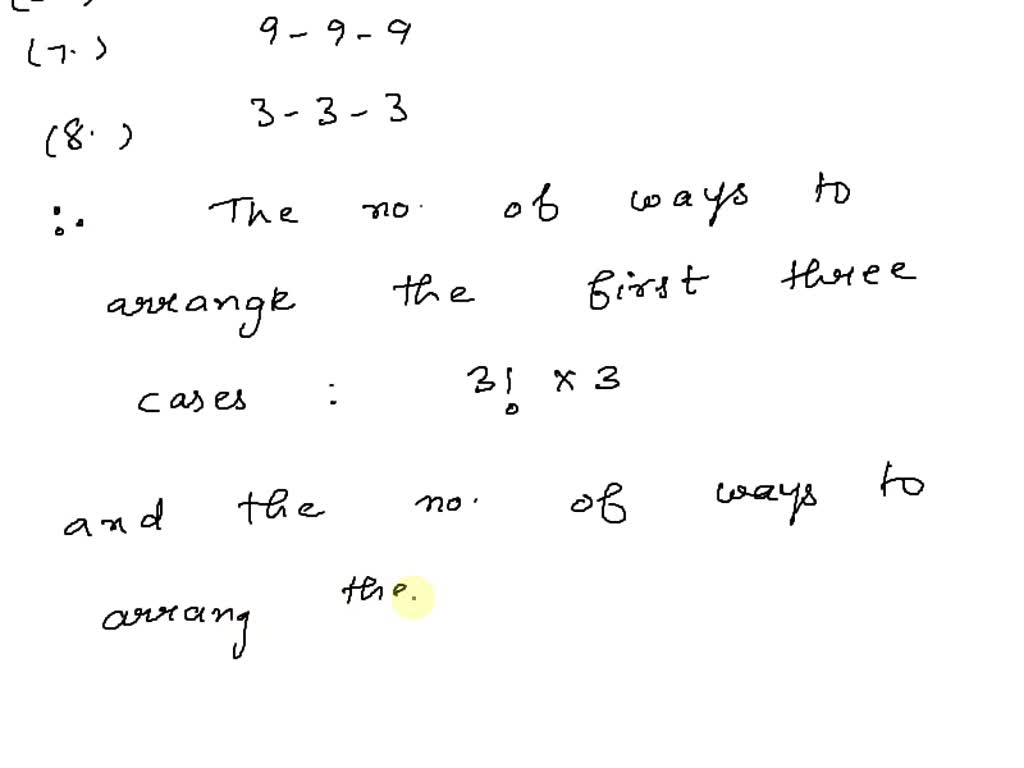 (7.) 9 - 9 - 9
(8.) 3 - 3 - 3
∴ The no. of ways to
arrange the first three
cases : 3! × 3
and the no. of ways to
arrang the